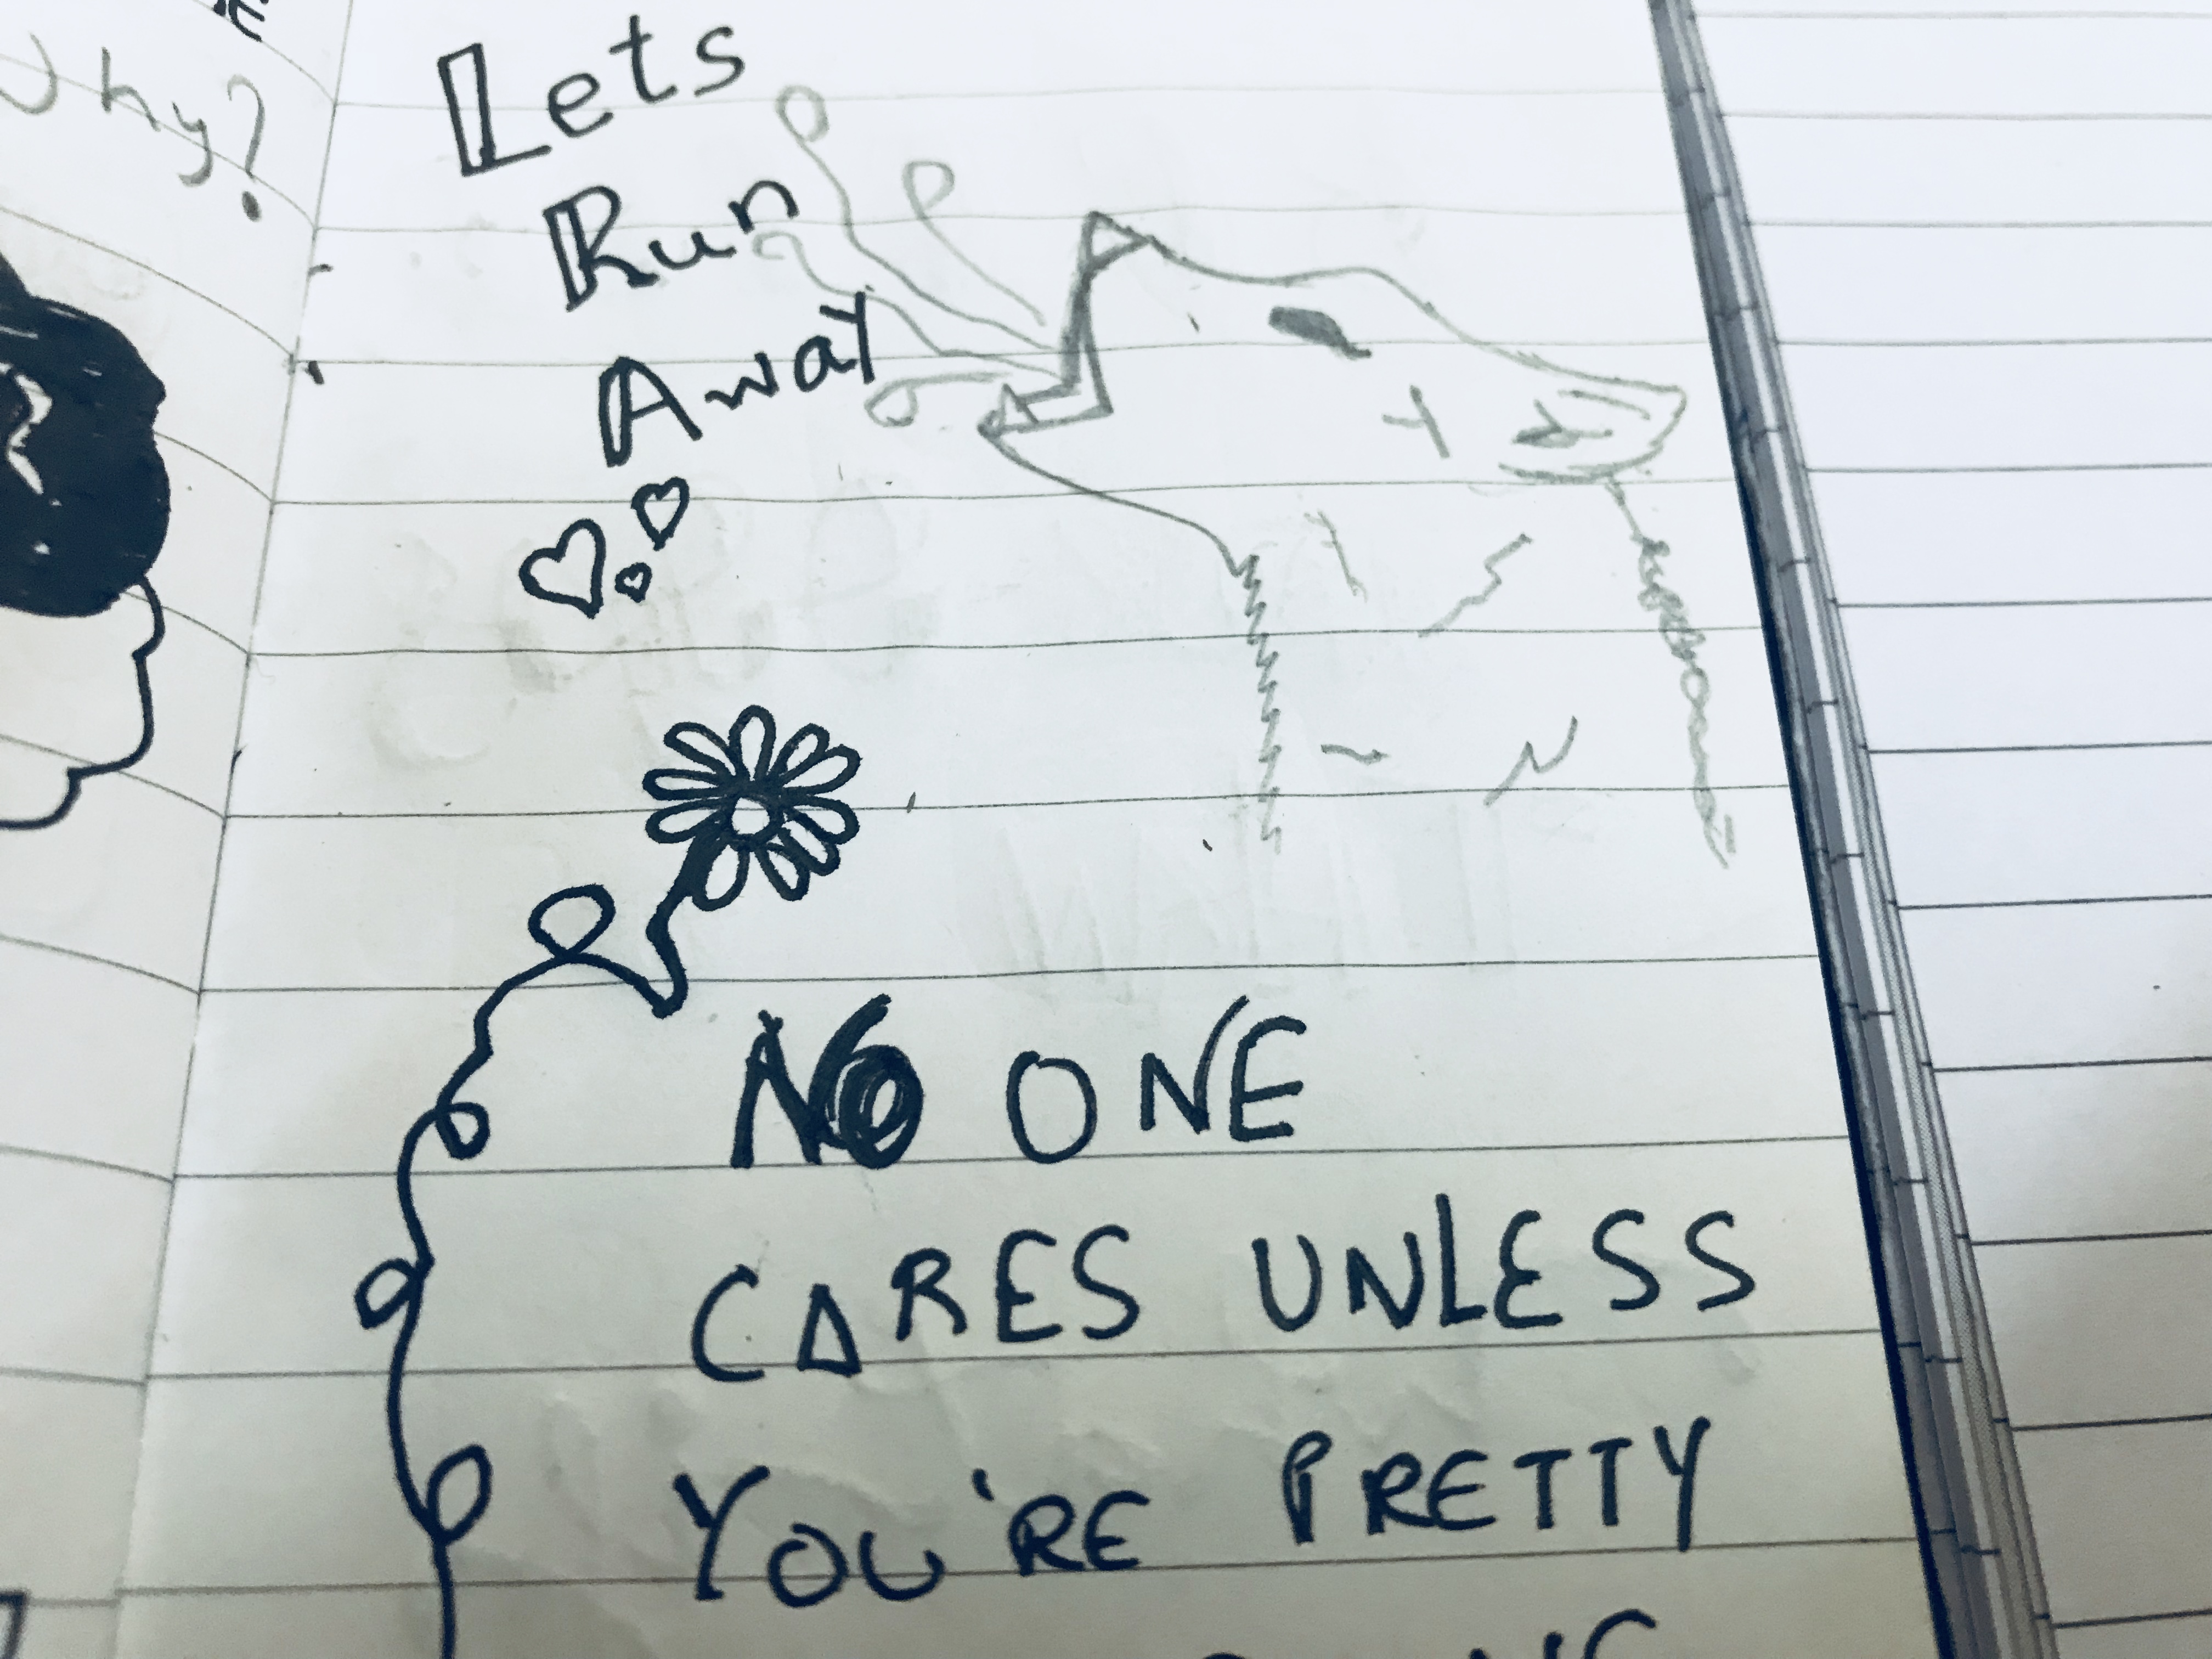 Why?
Lets
Run
Away
NO ONE
CARES UNLESS
YOU'RE PRETTY